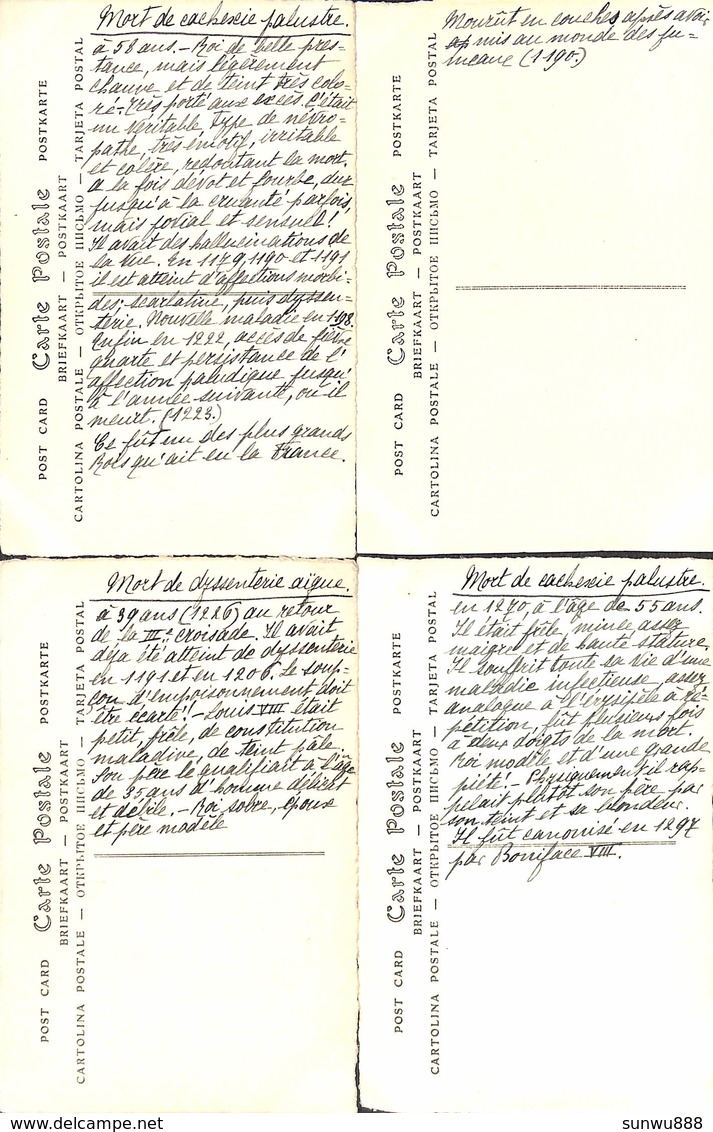 Mort de cachexie palustre.
à 58 ans. — Roi de belle pres=
tance, mais légèrement
chauve et de teint très colo=
ré. Très porté aux excès. C'était
un véritable type de névro=
pathe, très émotif, irritable
et colère, redoutant la mort.
à la fois dévot et fourbe, dur
jusqu'à la cruauté parfois,
mais jovial et sensuel!
Il avait des hallucinations de
la vue. En 1179, 1190 et 1191
il est atteint d'affections morbi=
des; scarlatine, puis dyssen=
terie. Nouvelle maladie en 1198.
Enfin en 1222, accès de fièvre
quarte et persistance de l'
affection paludique jusqu'
à l'année suivante, où il
meurt. (1223.)
Ce fût un des plus grands
Rois qu'ait eu la France.
POST CARD Carte Postale POSTKARTE
BRIEFKAART — POSTKAART
CARTOLINA POSTALE — ОТКРЫТОЕ ПИСЬМО — TARJETA POSTAL
Mourût en couches après avoir
mis au monde des ju=
meaux (1190.)
POST CARD Carte Postale POSTKARTE
BRIEFKAART — POSTKAART
CARTOLINA POSTALE — ОТКРЫТОЕ ПИСЬМО — TARJETA POSTAL
Mort de dyssenterie aïgue.
à 39 ans (1226) au retour
de la III: croisade. Il avait
déja été atteint de dyssenterie
en 1191 et en 1206. Le soup=
çon d'empoisonnement doit
être écarté!! — Louis VIII était
petit, frêle, de constitution
maladive, de teint pâle.
Son père le qualifiait à l'âge
de 35 ans d'homme délicat
et débile. — Roi sobre, époux
et père modèle
POST CARD Carte Postale POSTKARTE
BRIEFKAART — POSTKAART
CARTOLINA POSTALE — ОТКРЫТОЕ ПИСЬМО — TARJETA POSTAL
Mort de cachexie palustre.
en 1270, à l'âge de 55 ans.
Il était frêle, mince, assez
maigre et de haute stature.
Il souffrit toute sa vie d'une
maladie infectieuse, assez
analogue à l'érysipèle à ré=
pétition, fût plusieurs fois
à deux doigts de la mort.
Roi modèle et d'une grande
piété! — Physiquement il rap=
pelait plutôt son père par
son teint et sa blondeur.
Il fût canonisé en 1297
par Boniface VIII.
POST CARD Carte Postale POSTKARTE
BRIEFKAART — POSTKAART
CARTOLINA POSTALE — ОТКРЫТОЕ ПИСЬМО — TARJETA POSTAL
sunwu888